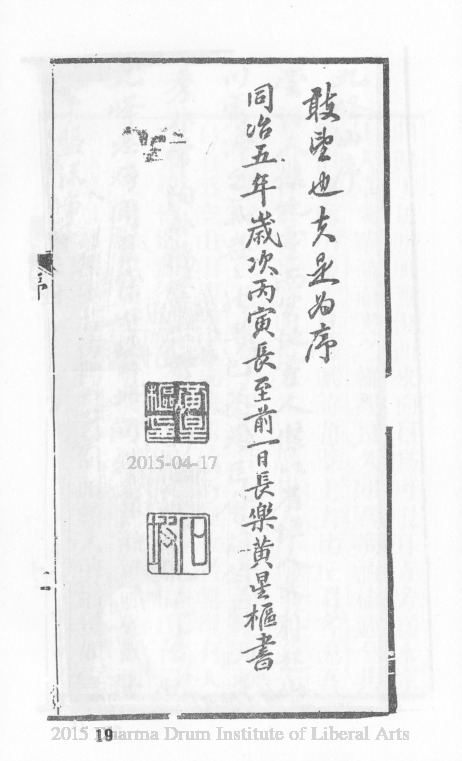 敢望也夫是為序
同治五年歲次丙寅長至前一日長樂黃星樞書
序
黃星樞印
2015-04-17
19
2015 Dharma Drum Institute of Liberal Arts